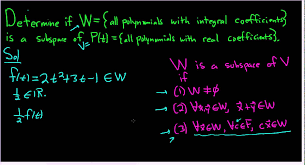 Determine if W={all polynomials with integral coefficients}
is a subspace of V= P(t)={all polynomials with real coefficients}.
Sol
f(t)=2t²+3t-1 ∈ W
½ ∈ ℝ.
½ f(t)
W is a subspace of V
if
→ (1) W ≠ ∅
→ (2) ∀x,y ∈ W, x+y ∈ W
→ (3) ∀x ∈ W, ∀c ∈ F, cx ∈ W
?